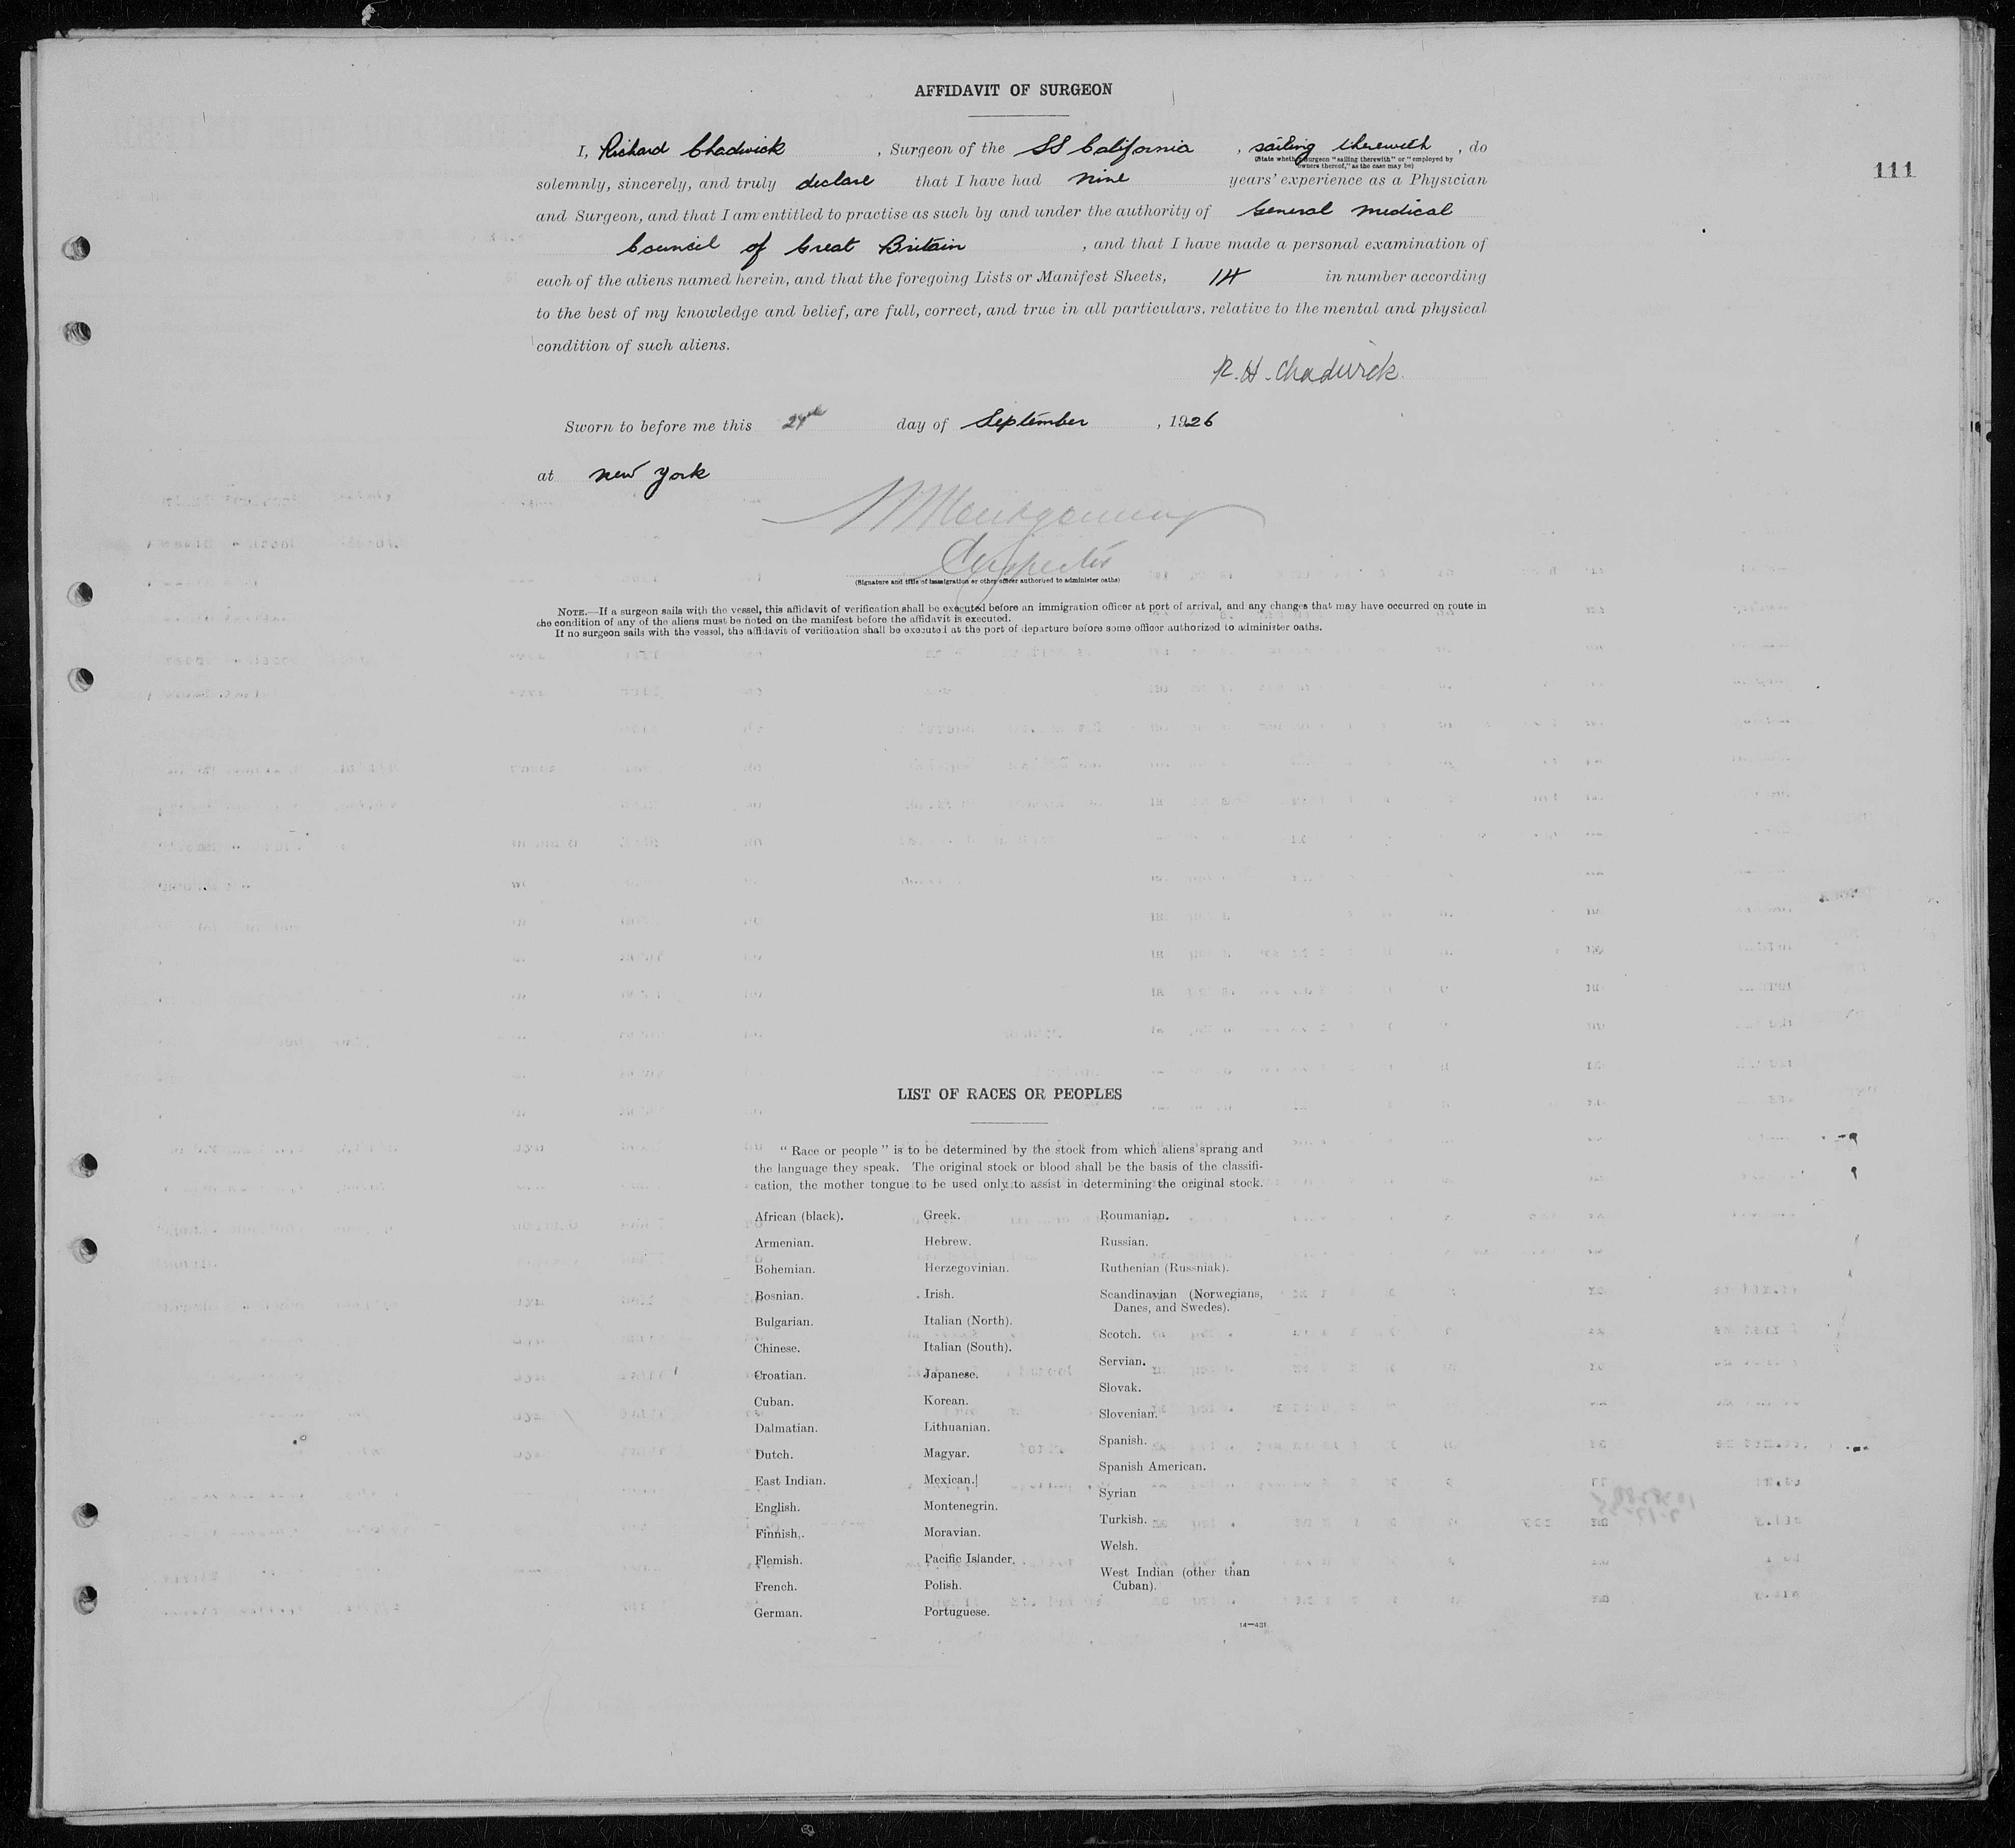 AFFIDAVIT OF SURGEON
I, Richard Chadwick, Surgeon of the SS California, sailing therewith, do
(State whether surgeon "sailing therewith" or "employed by
owners thereof," as the case may be)
111
solemnly, sincerely, and truly declare that I have had nine years' experience as a Physician
and Surgeon, and that I am entitled to practise as such by and under the authority of General Medical
Council of Great Britain, and that I have made a personal examination of
each of the aliens named herein, and that the foregoing Lists or Manifest Sheets, 14 in number according
to the best of my knowledge and belief, are full, correct, and true in all particulars, relative to the mental and physical
condition of such aliens.
R. H. Chadwick.
Sworn to before me this day of September, 1926
at New York
Montgomery
Inspector
(Signature and title of immigration or other officer authorized to administer oaths)
NOTE.—If a surgeon sails with the vessel, this affidavit of verification shall be executed before an immigration officer at port of arrival, and any changes that may have occurred en route in
the condition of any of the aliens must be noted on the manifest before the affidavit is executed.
If no surgeon sails with the vessel, the affidavit of verification shall be executed at the port of departure before some officer authorized to administer oaths.
LIST OF RACES OR PEOPLES
"Race or people" is to be determined by the stock from which aliens sprang and
the language they speak. The original stock or blood shall be the basis of the classifi-
cation, the mother tongue to be used only to assist in determining the original stock.
African (black).
Armenian.
Bohemian.
Bosnian.
Bulgarian.
Chinese.
Croatian.
Cuban.
Dalmatian.
Dutch.
East Indian.
English.
Finnish.
Flemish.
French.
German.
Greek.
Hebrew.
Herzegovinian.
Irish.
Italian (North).
Italian (South).
Japanese.
Korean.
Lithuanian.
Magyar.
Mexican.
Montenegrin.
Moravian.
Pacific Islander.
Polish.
Portuguese.
Roumanian.
Russian.
Ruthenian (Russniak).
Scandinavian (Norwegians,
Danes, and Swedes).
Scotch.
Servian.
Slovak.
Slovenian.
Spanish.
Spanish American.
Syrian
Turkish.
Welsh.
West Indian (other than
Cuban).
14—431